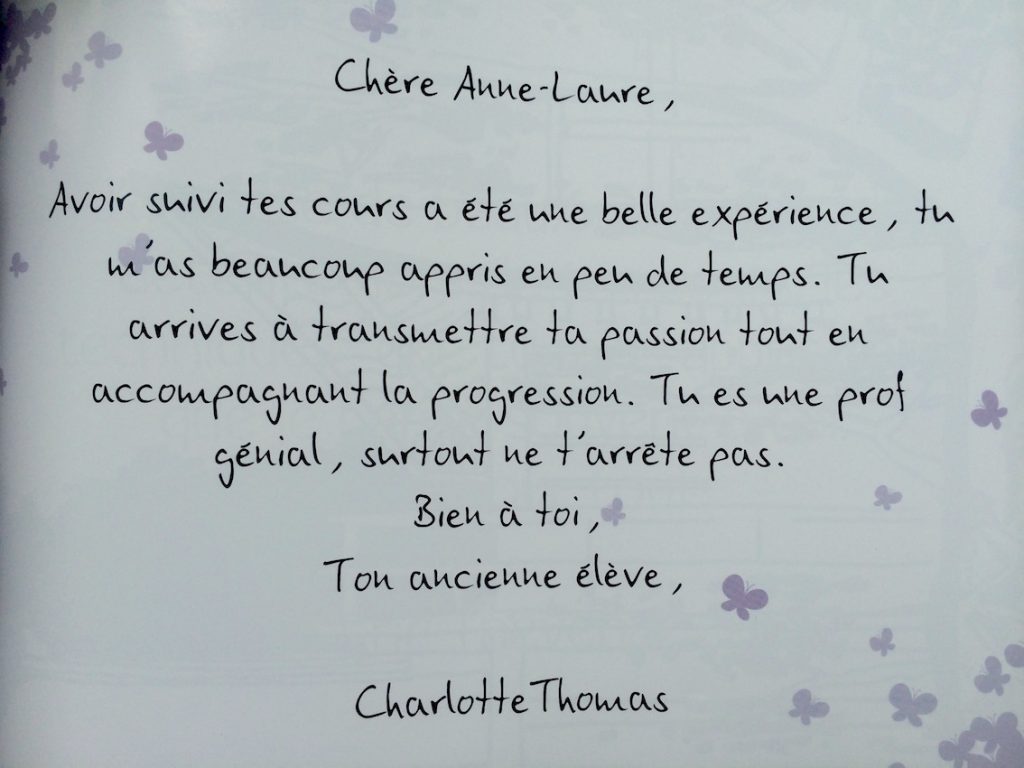 Chère Anne-Laure,
Avoir suivi tes cours a été une belle expérience, tu
m'as beaucoup appris en peu de temps. Tu
arrives à transmettre ta passion tout en
accompagnant la progression. Tu es une prof
génial, surtout ne t'arrête pas.
Bien à toi,
Ton ancienne élève,
Charlotte Thomas